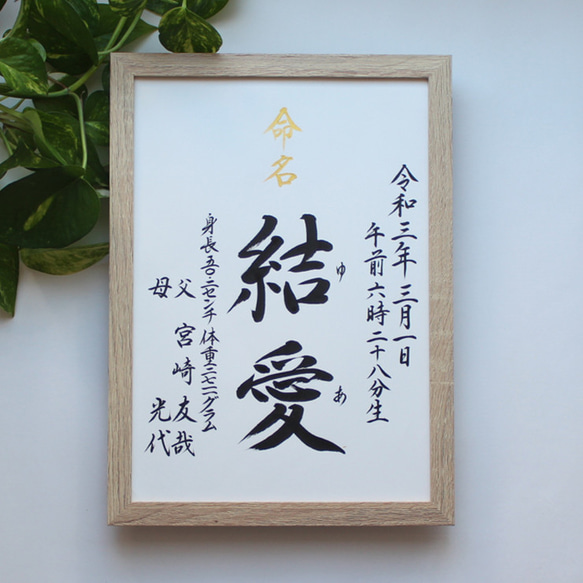 命名
令和三年三月一日
午前六時二十八分生
結愛
ゆあ
身長五〇・二センチ体重三二七二グラム
父宮崎友哉
母光代